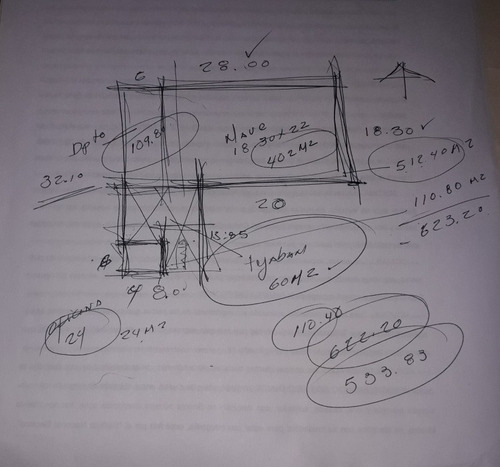 6
28.00
Dpto
109.8
Nave
18.30 x 22
402 M2
18.30
512.40 M2
32.10
110.80 M2
20
623.20
15.85
60 M2
4 8.0
24
24 M2
110.40
622.20
533.83